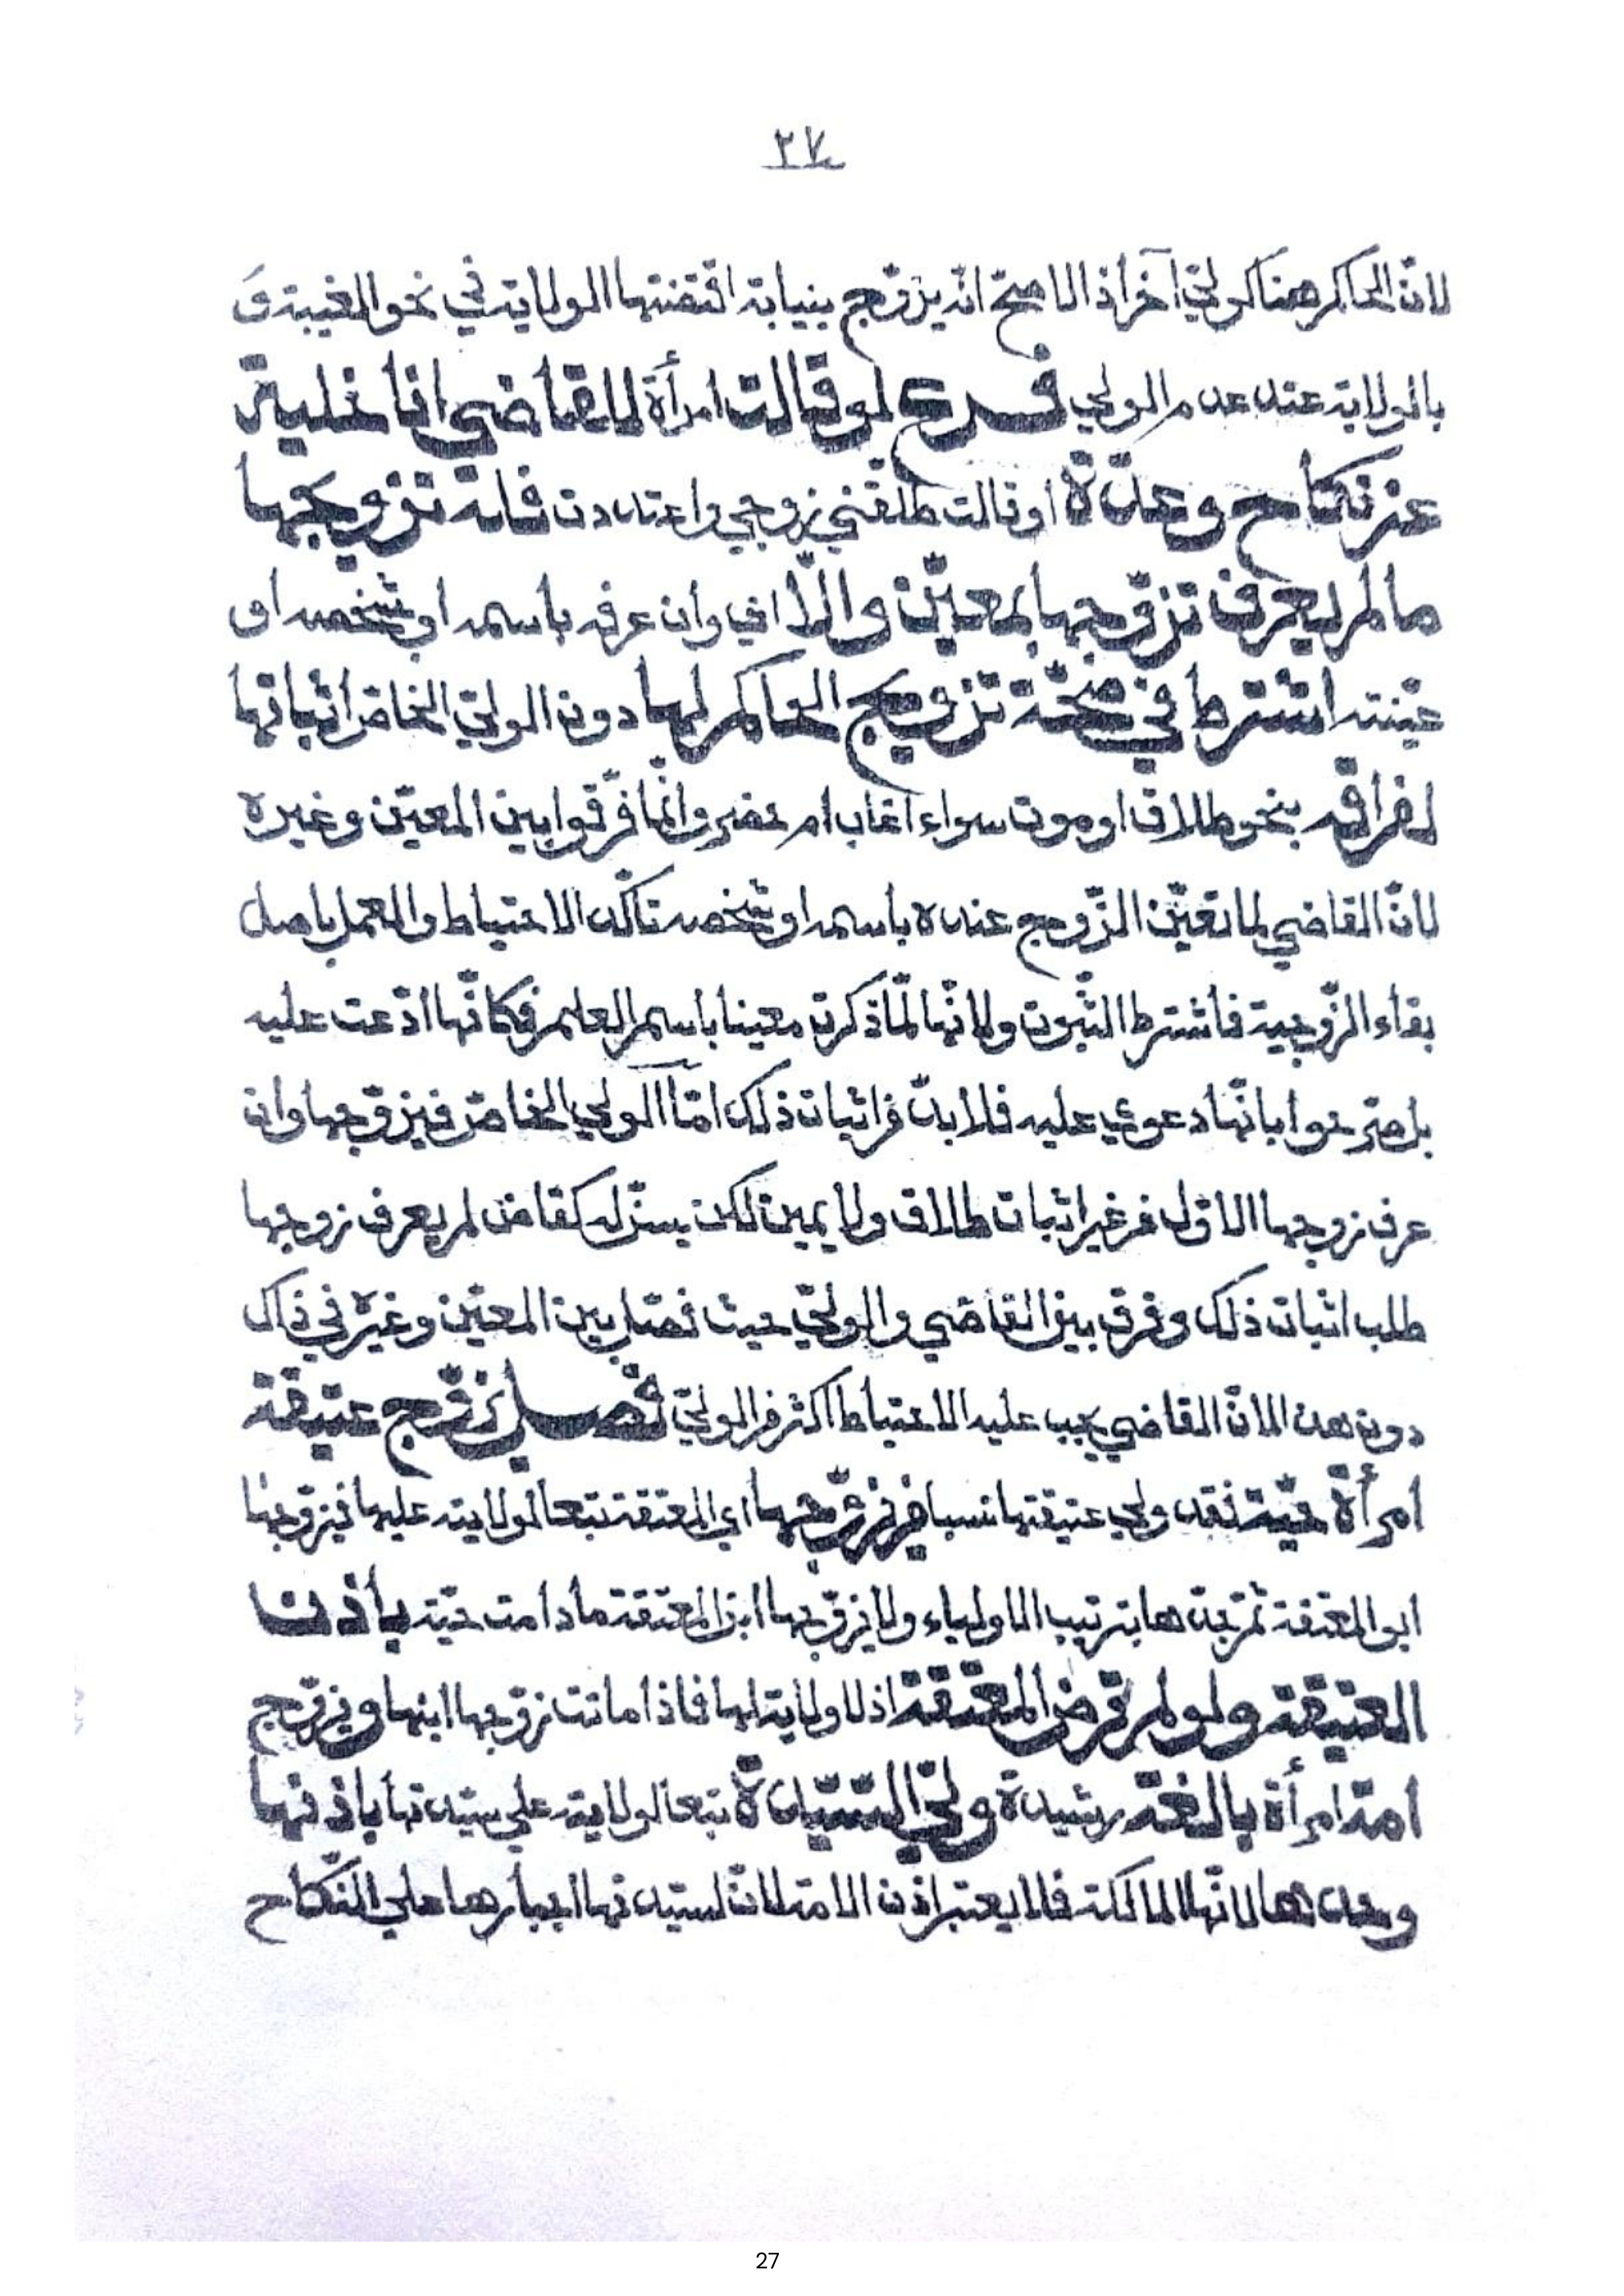 ٢٧
لانّ الحاكم هنا كوليّ آخر اذ الاصحّ انّه يزوّج بنيابة اقتضتها الولاية في نحو الغيبة وَ
بالولاية عند عدم الولي فرع لو قالت امرأة للقاضي انا خلية
عن نكاح وعدّة او قالت طلقني زوجي واعتددت فله تزويجها
ما لم يعرف تزوّجها بمعيّن والّا اي وان عرفه باسمه او شخصه او
عيّنته اشترط في صحّة تزويج الحاكم لها دون الوليّ الخاص اثباتها
لفراقه بنحو طلاق او موت سواء اغاب ام حضر وانّما فرّقوا بين المعيّن وغيره
لانّ القاضي لما تعيّن الزّوج عنده باسمه او شخصه تأكّد الاحتياط والعمل باصل
بقاء الزّوجية فاشترط الثّبوت ولانّها لمّا ذكرت معينا باسم العلم فكانّها ادّعت عليه
بل صرّحوا بانّها دعوي عليه فلا بدّ من اثبات ذلك امّا الولي الخاصّ فيزوّجها وان
عرف زوجها الاوّل من غير اثبات طلاق ولا يمين لكن يسنّ له كقاض لم يعرف زوجها
طلب اثبات ذلك وفرق بين القاضي والوليّ حيث فصّل بين المعيّن وغيره في ذاك
دون هذا لانّ القاضي يجب عليه الاحتياط اكثر من الوليّ فصل يزوّج عتيقة
امرأة حيّة فقد ولي عتيقتها نسبا من يزوّجها اي المعتقة تبعا لولايته عليها فيزوّجها
ابو المعتقة ثم جدّها بترتيب الاولياء ولا يزوّجها ابن المعتقة ما دامت حيّة باذن
العتيقة ولو لم ترض المعتقة اذ لا ولاية لها فاذا ماتت زوّجها ابنها ويزوّج
امة امرأة بالغة رشيدة وليّ السّيّدة تبعا لولايته علي سيّدتها باذنها
وحدها لانّها المالكة فلا يعتبر اذن الامة لانّ لسيّدتها اجبارها علي النّكاح
27